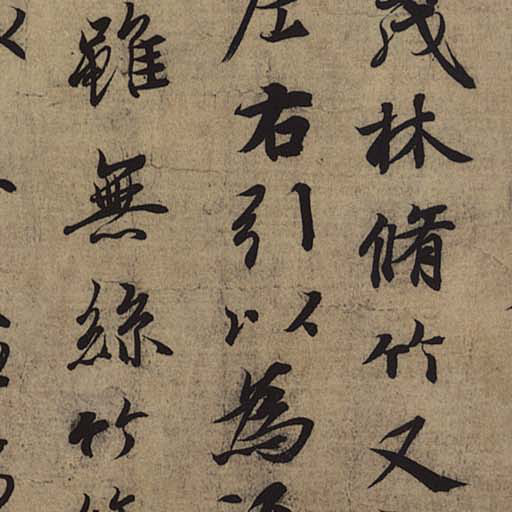 茂林脩竹又
左右引以為
雖無絲竹